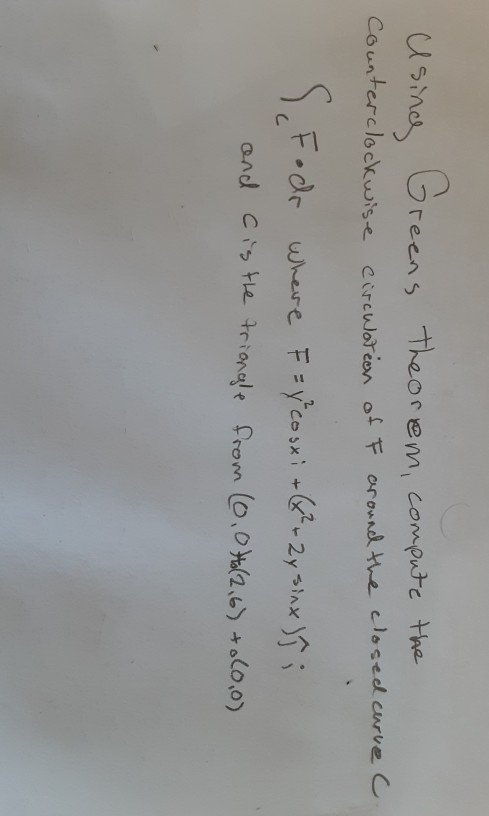 Using Greens theorem, compute the
Counterclockwise circulation of F around the closed curve C.
∫c F•dr where F = y²cosx i + (x² + 2y sinx) ĵ ;
and C is the triangle from (0,0) to (2,6) to (0,0)